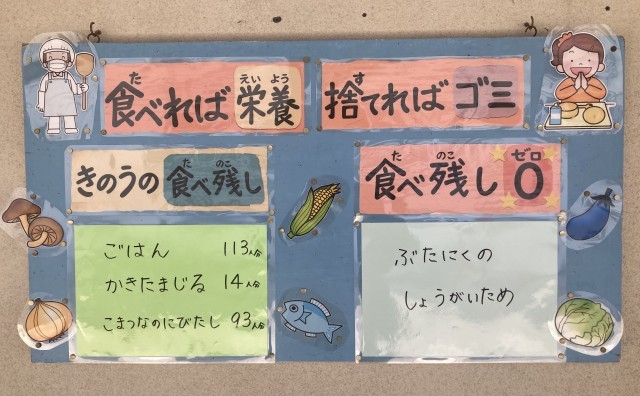 食べれば栄養
捨てればゴミ
きのうの食べ残し
ごはん 113人分
かきたまじる 14人分
こまつなのにびたし 93人分
食べ残し0
ぶたにくの
しょうがいため